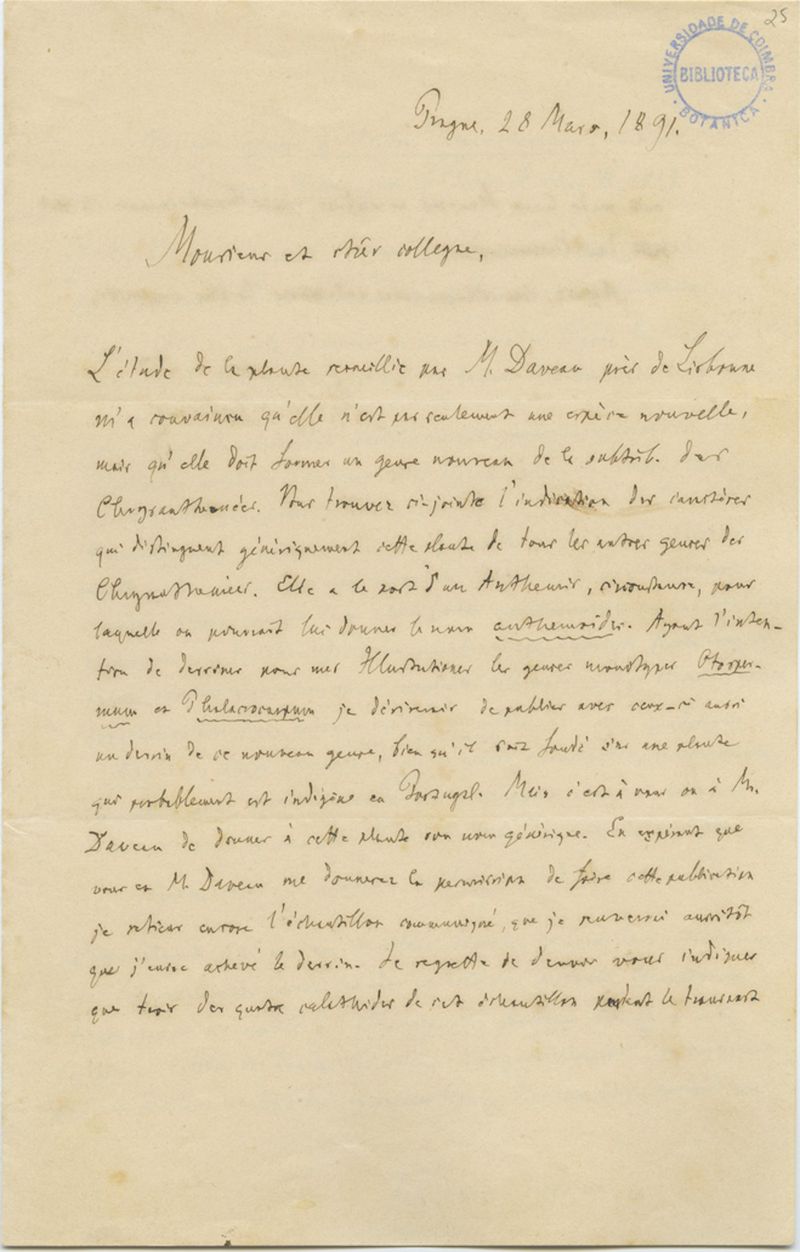 25
UNIVERSIDADE DE COIMBRA
BIBLIOTECA
BOTANICA
Prague, 28 Mars, 1891.
Monsieur et cher collegue,
L'étude de la plante recueillie par M. Daveau près de Lisbonne
m'a convaincu qu'elle n'est pas seulement une espèce nouvelle,
mais qu'elle doit former un genre nouveau de la subtrib. des
Chrysanthemées. Vous trouvez ci-jointe l'indication des caractères
qui distinguent génériquement cette plante de tous les autres genres des
Chrysanthemées. Elle a le port d'un Anthemis, circonstance, pour
laquelle on pourrait lui donner le nom anthemoides. Ayant l'inten-
tion de dessiner pour mes Illustrationes les genres monotypes Otosper-
mum et Phalacrocarpum je désirerais de publier avec ceux-ci aussi
un dessin de ce nouveau genre, bien qu'il soit fondé sur une plante
qui probablement est indigène en Portugal. Mais c'est à vous ou à M.
Daveau de donner à cette plante son nom générique. En espérant que
vous et M. Daveau me donnerez la permission de faire cette publication
je retiens encore l'échantillon communiqué, que je renverrai aussitôt
que j'aurai achevé le dessin. Je regrette de devoir vous indiquer
que trois des quatre calathides de cet échantillon pendant le transport